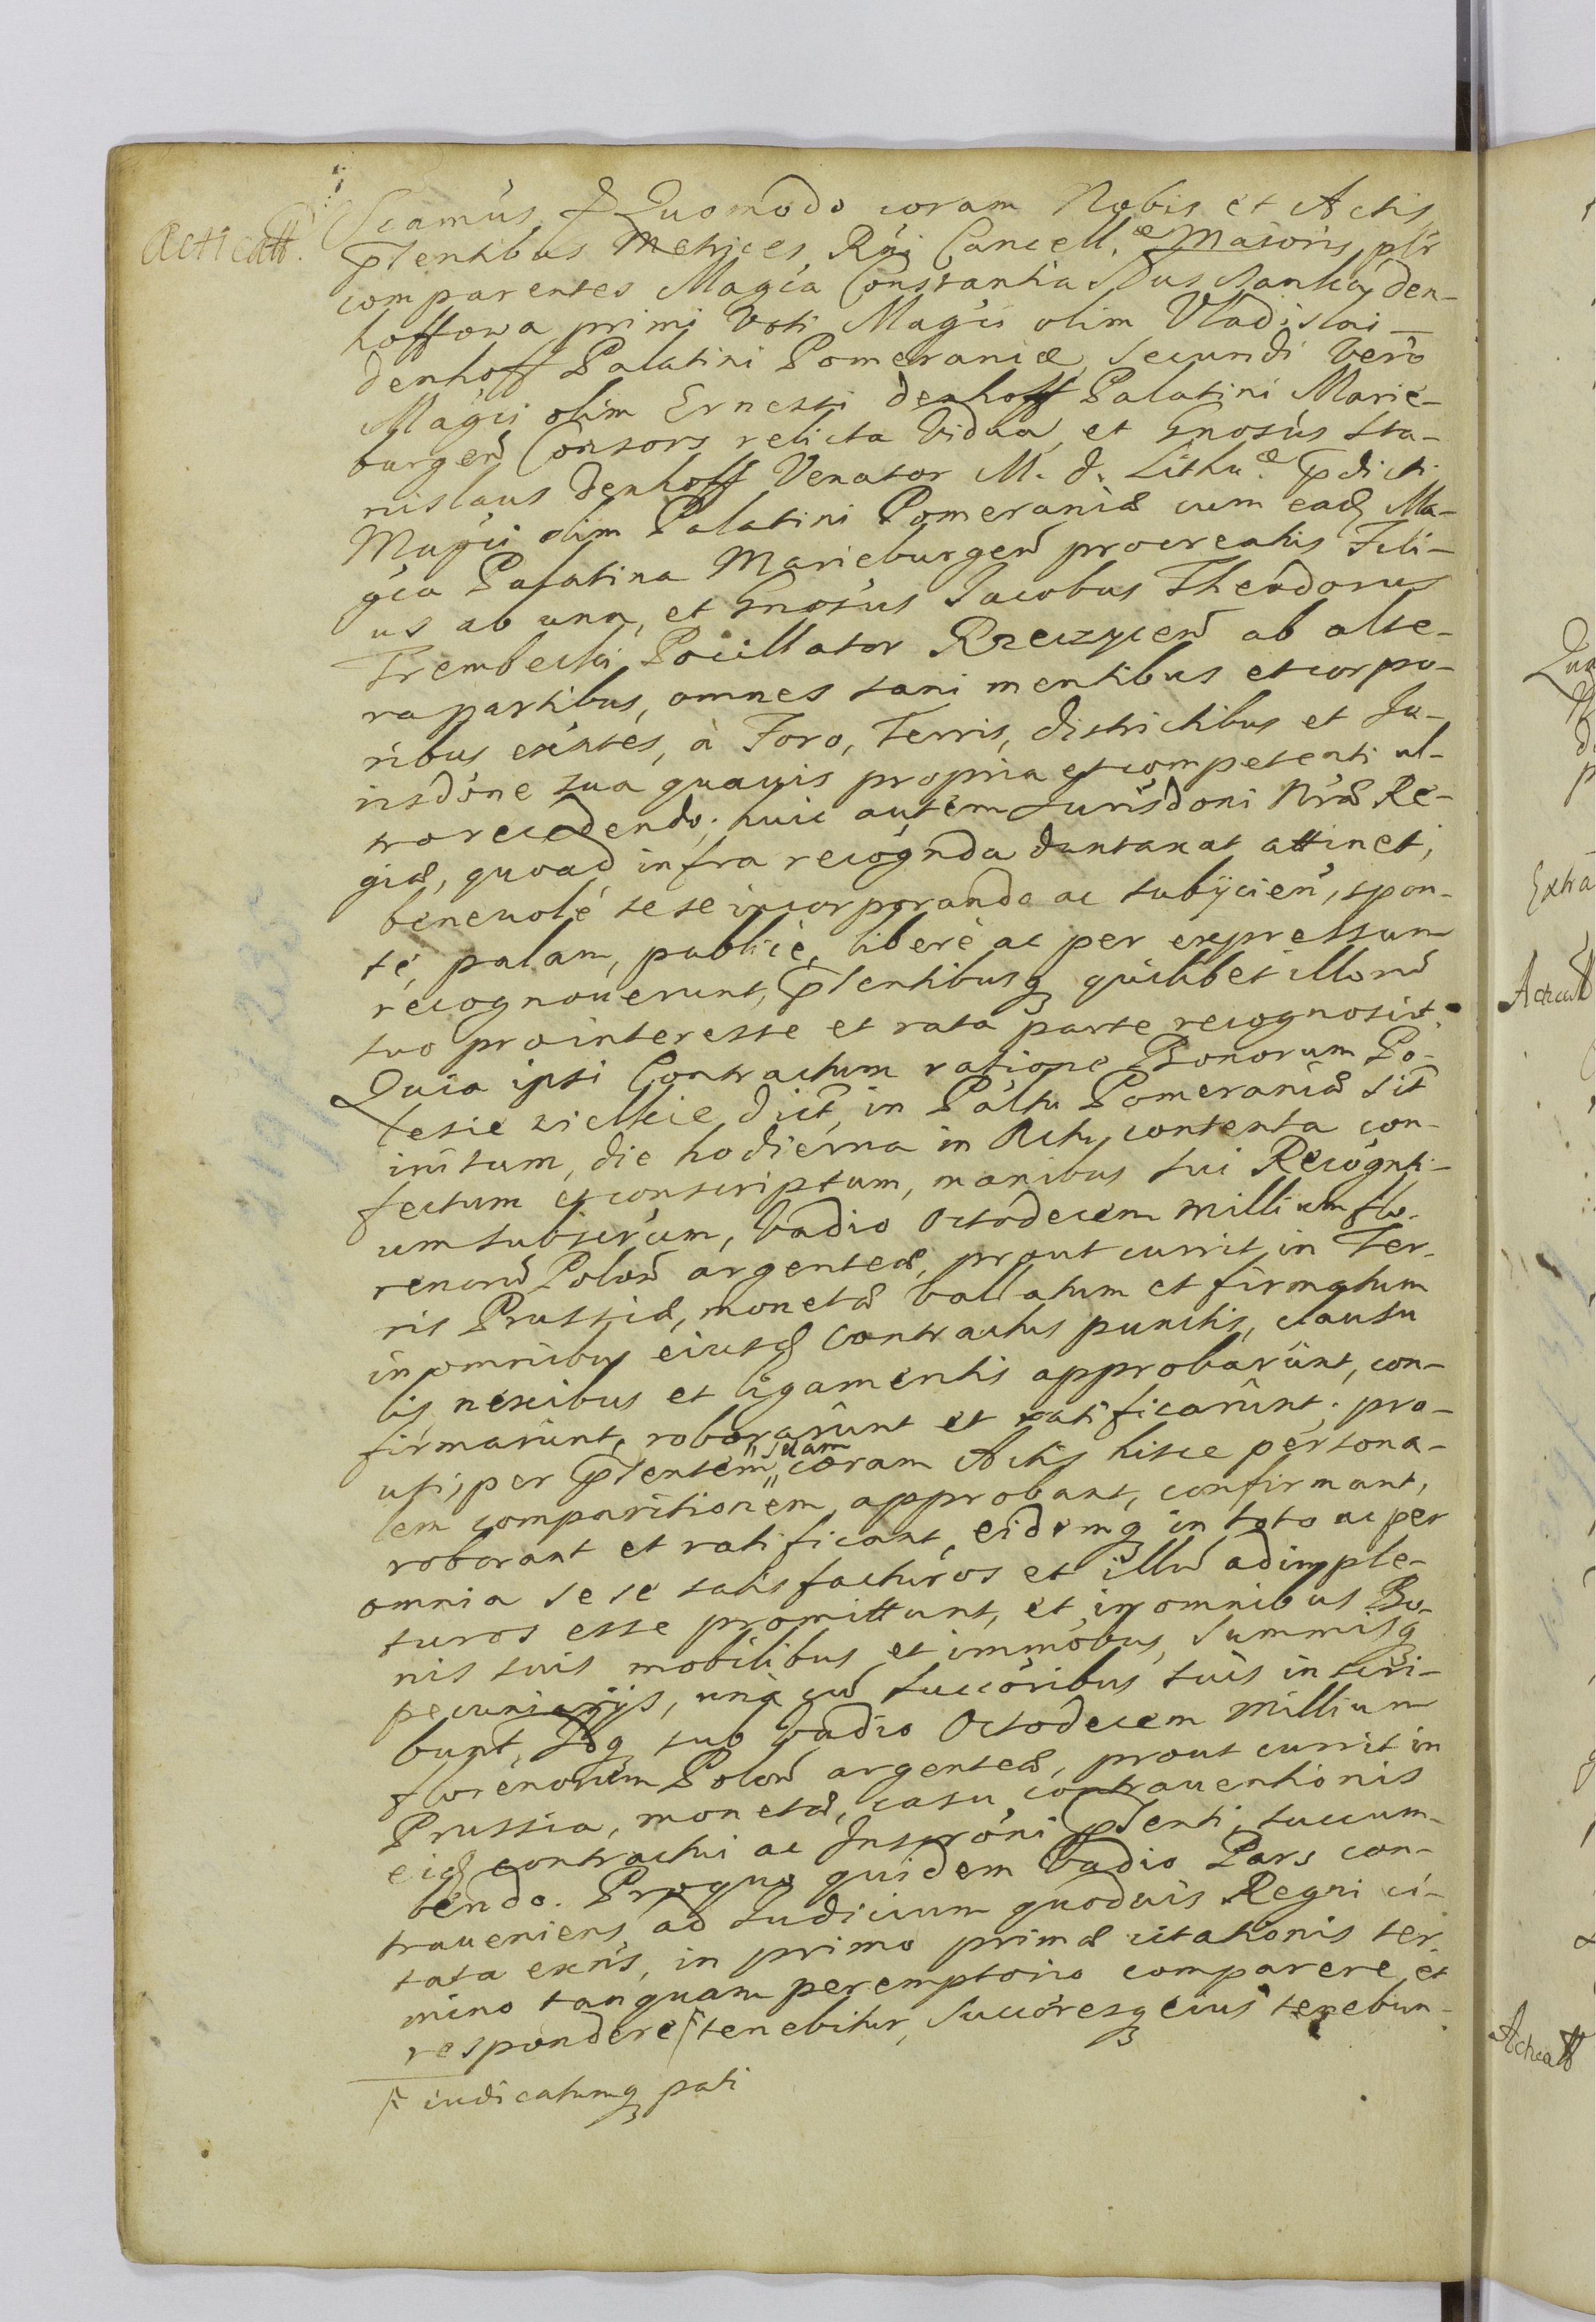 Acticatt.
Scamus & Quomodo coram Nobis et Actis
pñtentibus Metrices Rñi Cancell.æ Maioris, plr
comparentes Magca Constantia Słuszkanka den-
hoffowa primi Voti Magci olim Vladislai
denhoff Palatini Pomeraniæ, secundi Vero
Magci olim Ernesti denhoff Palatini Marie-
burgeñ Consors relicta Vidua, et Gnosus Sta-
nislaus denhoff Venator M. d. Lithu.æ pdicti
Magci olim Palatini Pomeraniæ cum eadꝫ Ma-
gca Palatina Marieburgeñ procreatus Fili-
us ab una, et Gnosus Jacobus Theodorus
Trembecki Pocillator Rzeczyceñ ab alte-
ra partibus, omnes sani mentibus et corpo-
ribus exñtes, à Foro, Terris, districtibus et Ju-
risdone sua quavis propria et competenti ul-
tro recedendo; huic autem Jurisdoni Nræ Re-
giæ, quoad infra recognda duntaxat attinet,
benevolé sese incorporando ac subÿcieñ, spon-
te, palam, publicè, liberè ac per expressum
recognoverunt, pñtentibusqꝫ quilibet illorũ
suo prointeresse et rata parte recognoscit.
Quia ipsi Contractum ratione Bonorum Po-
lesie dict, in Paltu Pomeraniæ sit
initum, die hodierna in Actu contenta con-
fectum et conscriptum, manibus sui Recognti-
um subscrum, Vadio Octodecem millium flo-
renorũ Poloñ argenteæ, prout currit in Ter-
ris Prussiæ, monetæ vallatum et firmatum
in omnibus eiusdꝫ contractus punctis, clausu
lis nexibus et ligamentis approbarunt, con-
firmarunt, roborarunt et ratificarunt; pro-
uti, per pñtentem "suam" coram Actis hisce persona-
lem comparitionem, approbant, confirmant,
roborant et ratificant, eidemqꝫ in toto ac per
omnia sese satisfacturos et illũ adimple-
turos esse promittunt, et in omnibus Bo-
nis suis mobilibus et immobus, Summisqꝫ
pecuniarÿs, unà cũ succoribus suis inscri-
bunt, Idqꝫ sub Vadio Octodecem millium
florenorum Poloñ argenteæ, prout currit in
Prussia, monetæ, casu contraventionis
eidꝫ contractui ac Inscroni pñtenti, succum-
bendo. Pro quo quidem Vadio Pars con-
traveniens ad Judicium quodvis Regni ci-
tata exñs, in primo primæ citationis ter-
mino tanquam peremptorio comparere et
respondere tenebitur, Succoresqꝫ eius tenebun-
iudicatumqꝫ pati
Extra
Acticatt
Acticatt